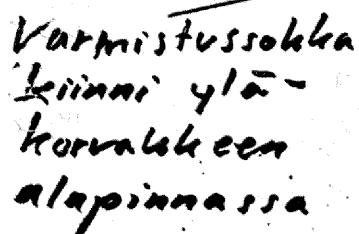 Varmistussokka
kiinni ylä-
korvakkeen
alapinnassa